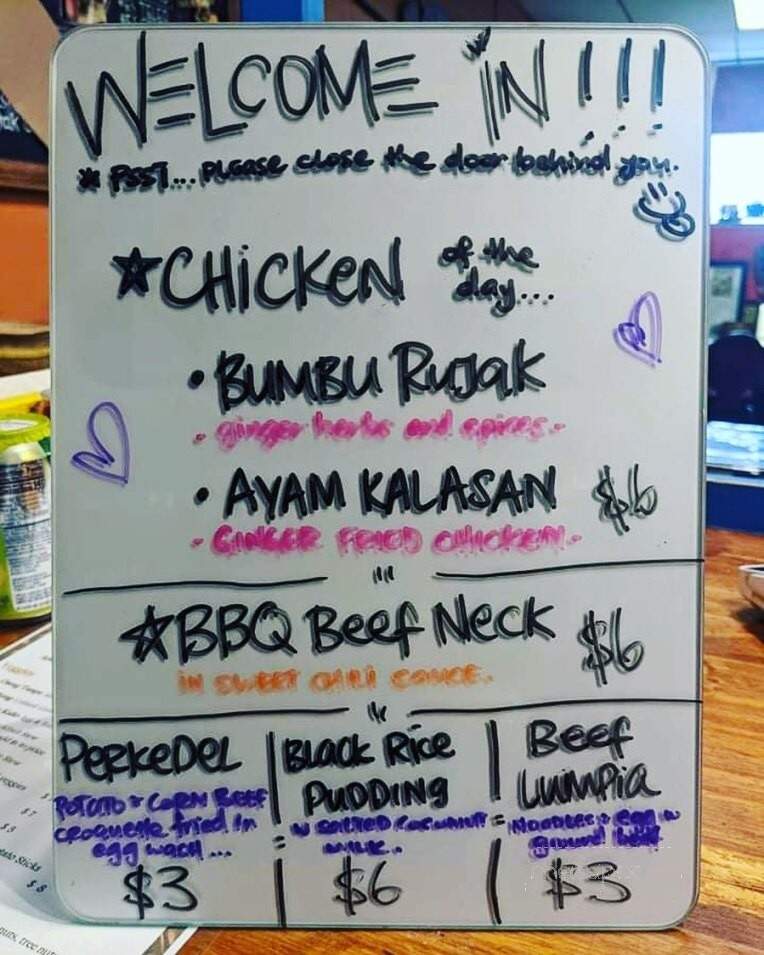 WELCOME IN!!!
* PSST... PLEASE close the door behind you.
CHICKEN of the day...
• BUMBU Rujak
- ginger herbs and spices -
• AYAM KALASAN $6
- GINGER FRIED CHICKEN -
BBQ Beef Neck $6
IN SWEET CHILI SAUCE.
PERKEDEL
POTATO + CORN BEEF
croquette fried in
egg wash ...
$3
BLACK Rice
PUDDING
W SALTED COCONUT
MILK..
$6
Beef
Lumpia
Noodles + egg w
ground beef
$3
$7
$5
$8